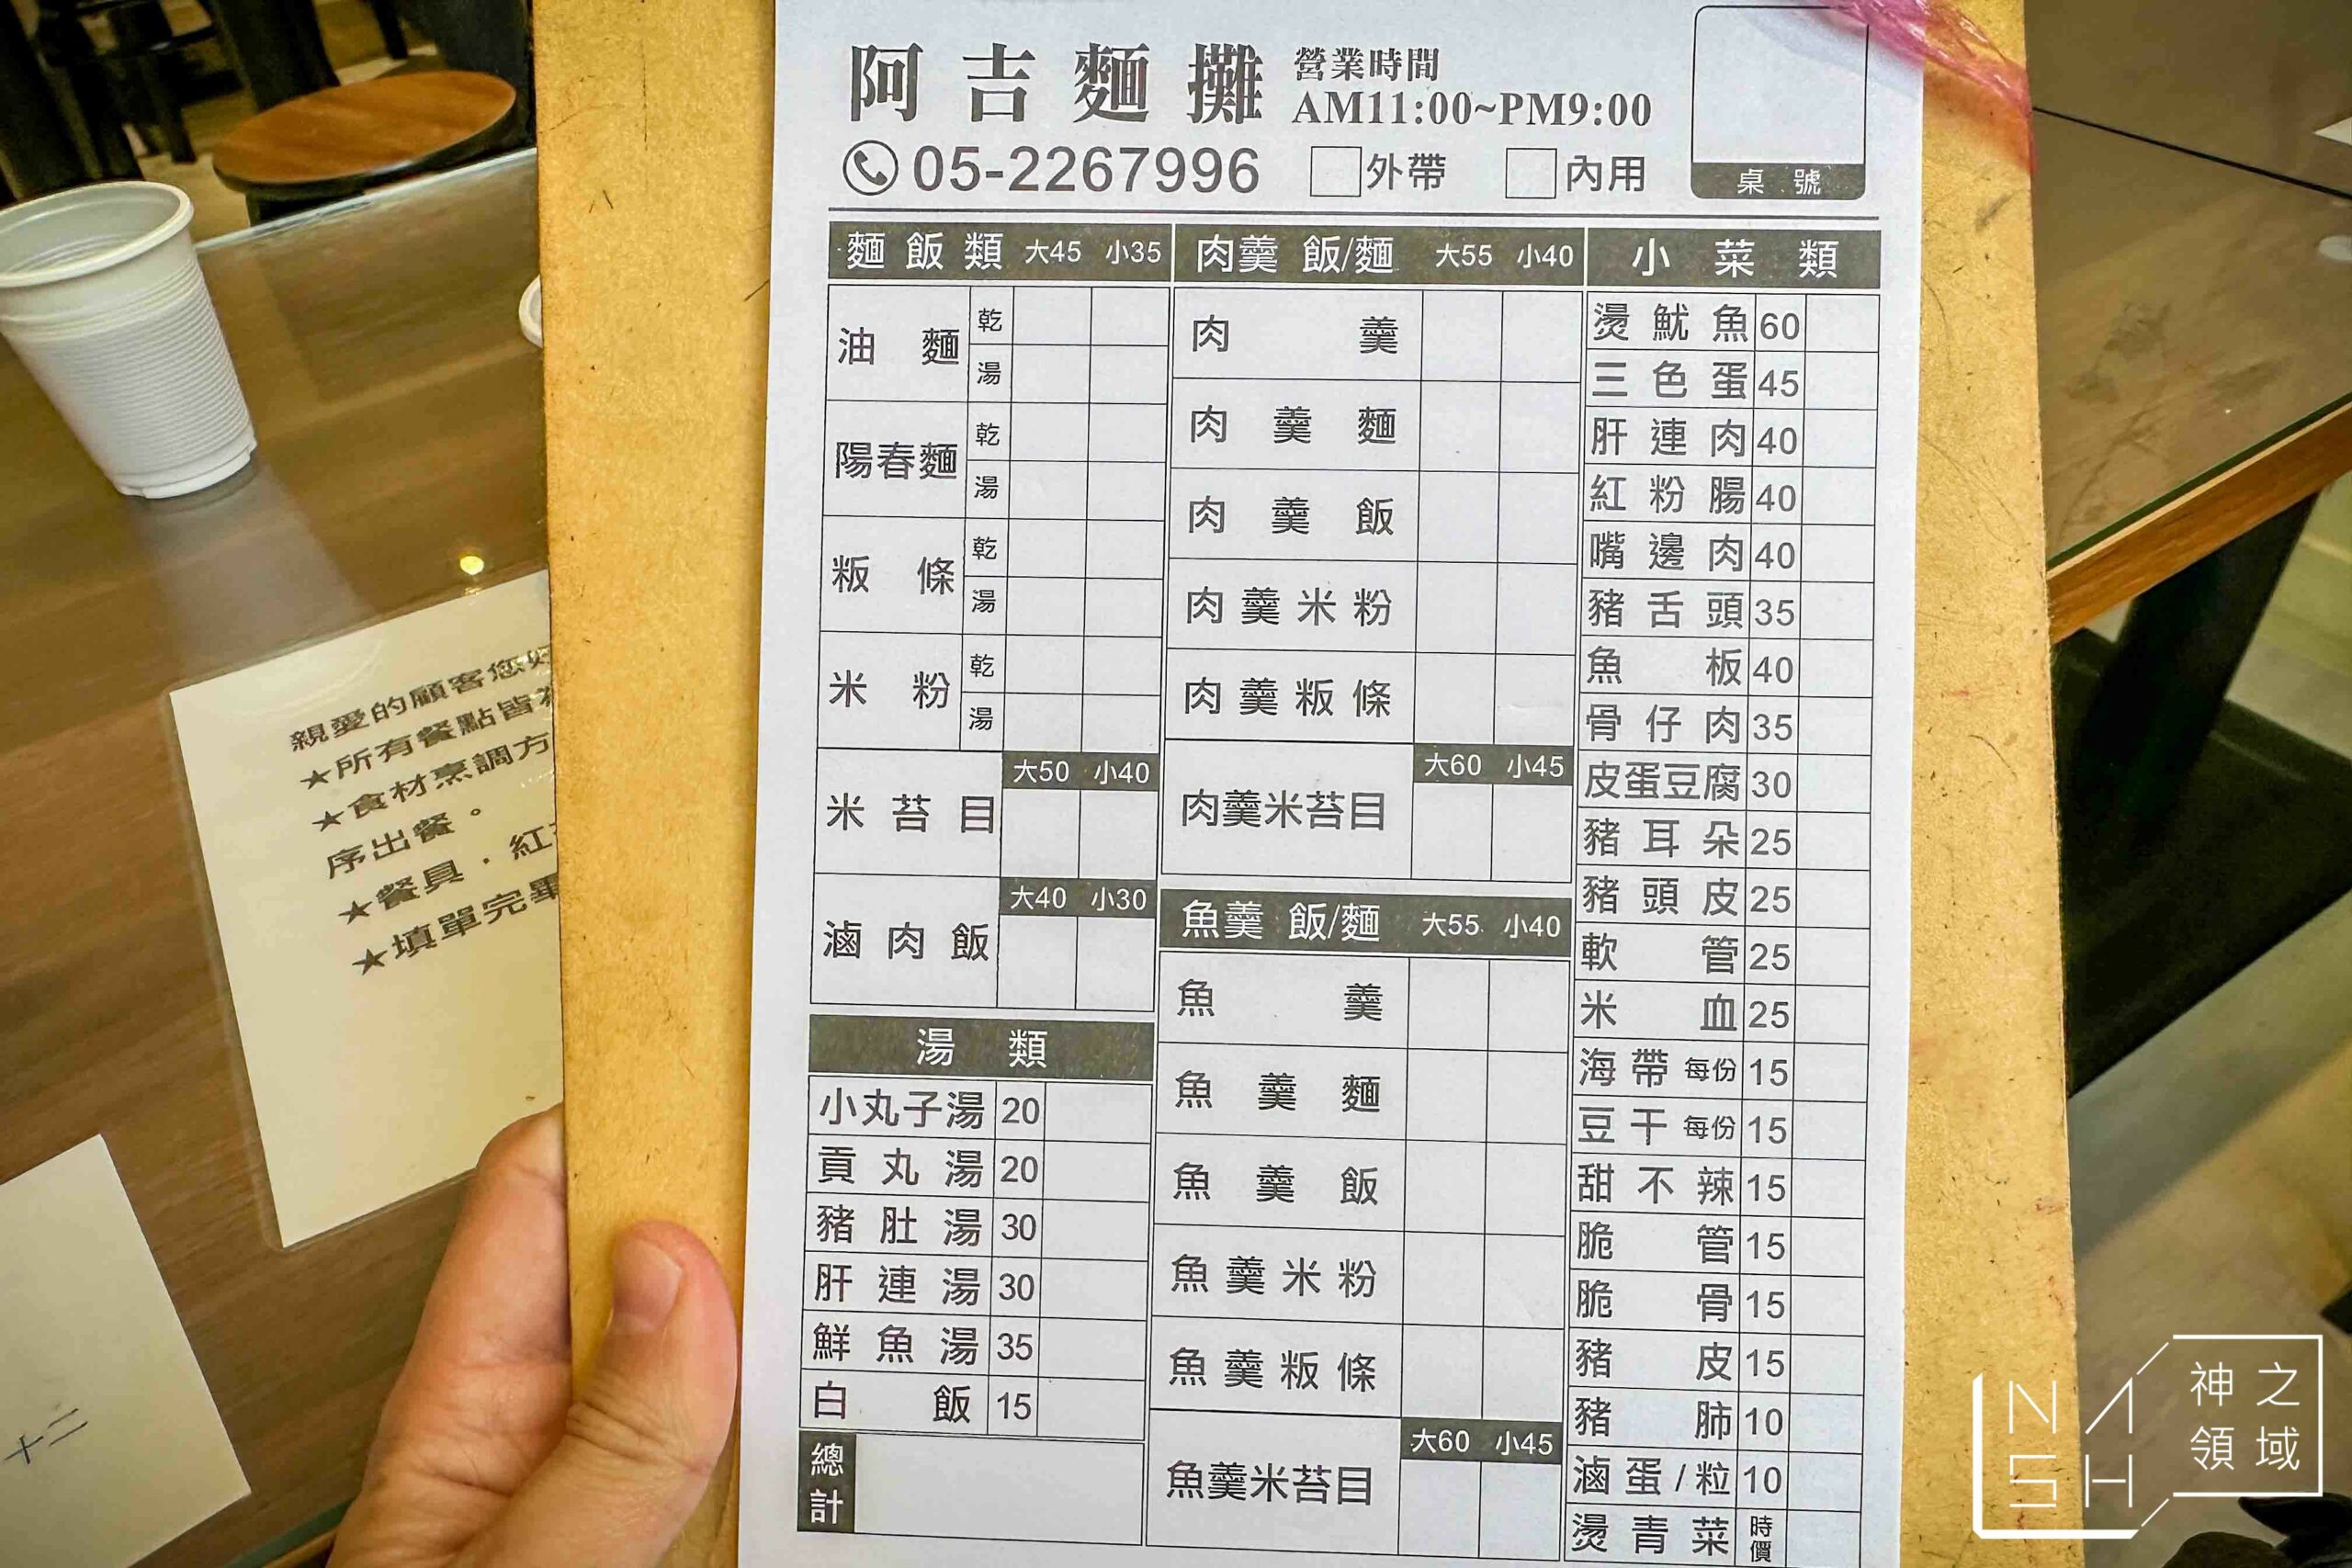 阿吉麵攤 營業時間
AM11:00~PM9:00
05-2267996 外帶 內用
桌號
麵飯類 大45 小35
油麵 乾
湯
陽春麵 乾
湯
粄條 乾
湯
米粉 乾
湯
大50 小40
米苔目
大40 小30
滷肉飯
湯類
小丸子湯 20
貢丸湯 20
豬肚湯 30
肝連湯 30
鮮魚湯 35
白飯 15
總計
肉羹 飯/麵 大55 小40
肉羹
肉羹麵
肉羹飯
肉羹米粉
肉羹粄條
大60 小45
肉羹米苔目
魚羹 飯/麵 大55 小40
魚羹
魚羹麵
魚羹飯
魚羹米粉
魚羹粄條
大60 小45
魚羹米苔目
小菜類
燙魷魚 60
三色蛋 45
肝連肉 40
紅粉腸 40
嘴邊肉 40
豬舌頭 35
魚板 40
骨仔肉 35
皮蛋豆腐 30
豬耳朵 25
豬頭皮 25
軟管 25
米血 25
海帶 每份 15
豆干 每份 15
甜不辣 15
脆管 15
脆骨 15
豬皮 15
豬肺 10
滷蛋/粒 10
燙青菜 時價
親愛的顧客您好
★所有餐點皆
★食材烹調方
序出餐。
★餐具．紅
★填單完畢
十二
NASH
神之領域